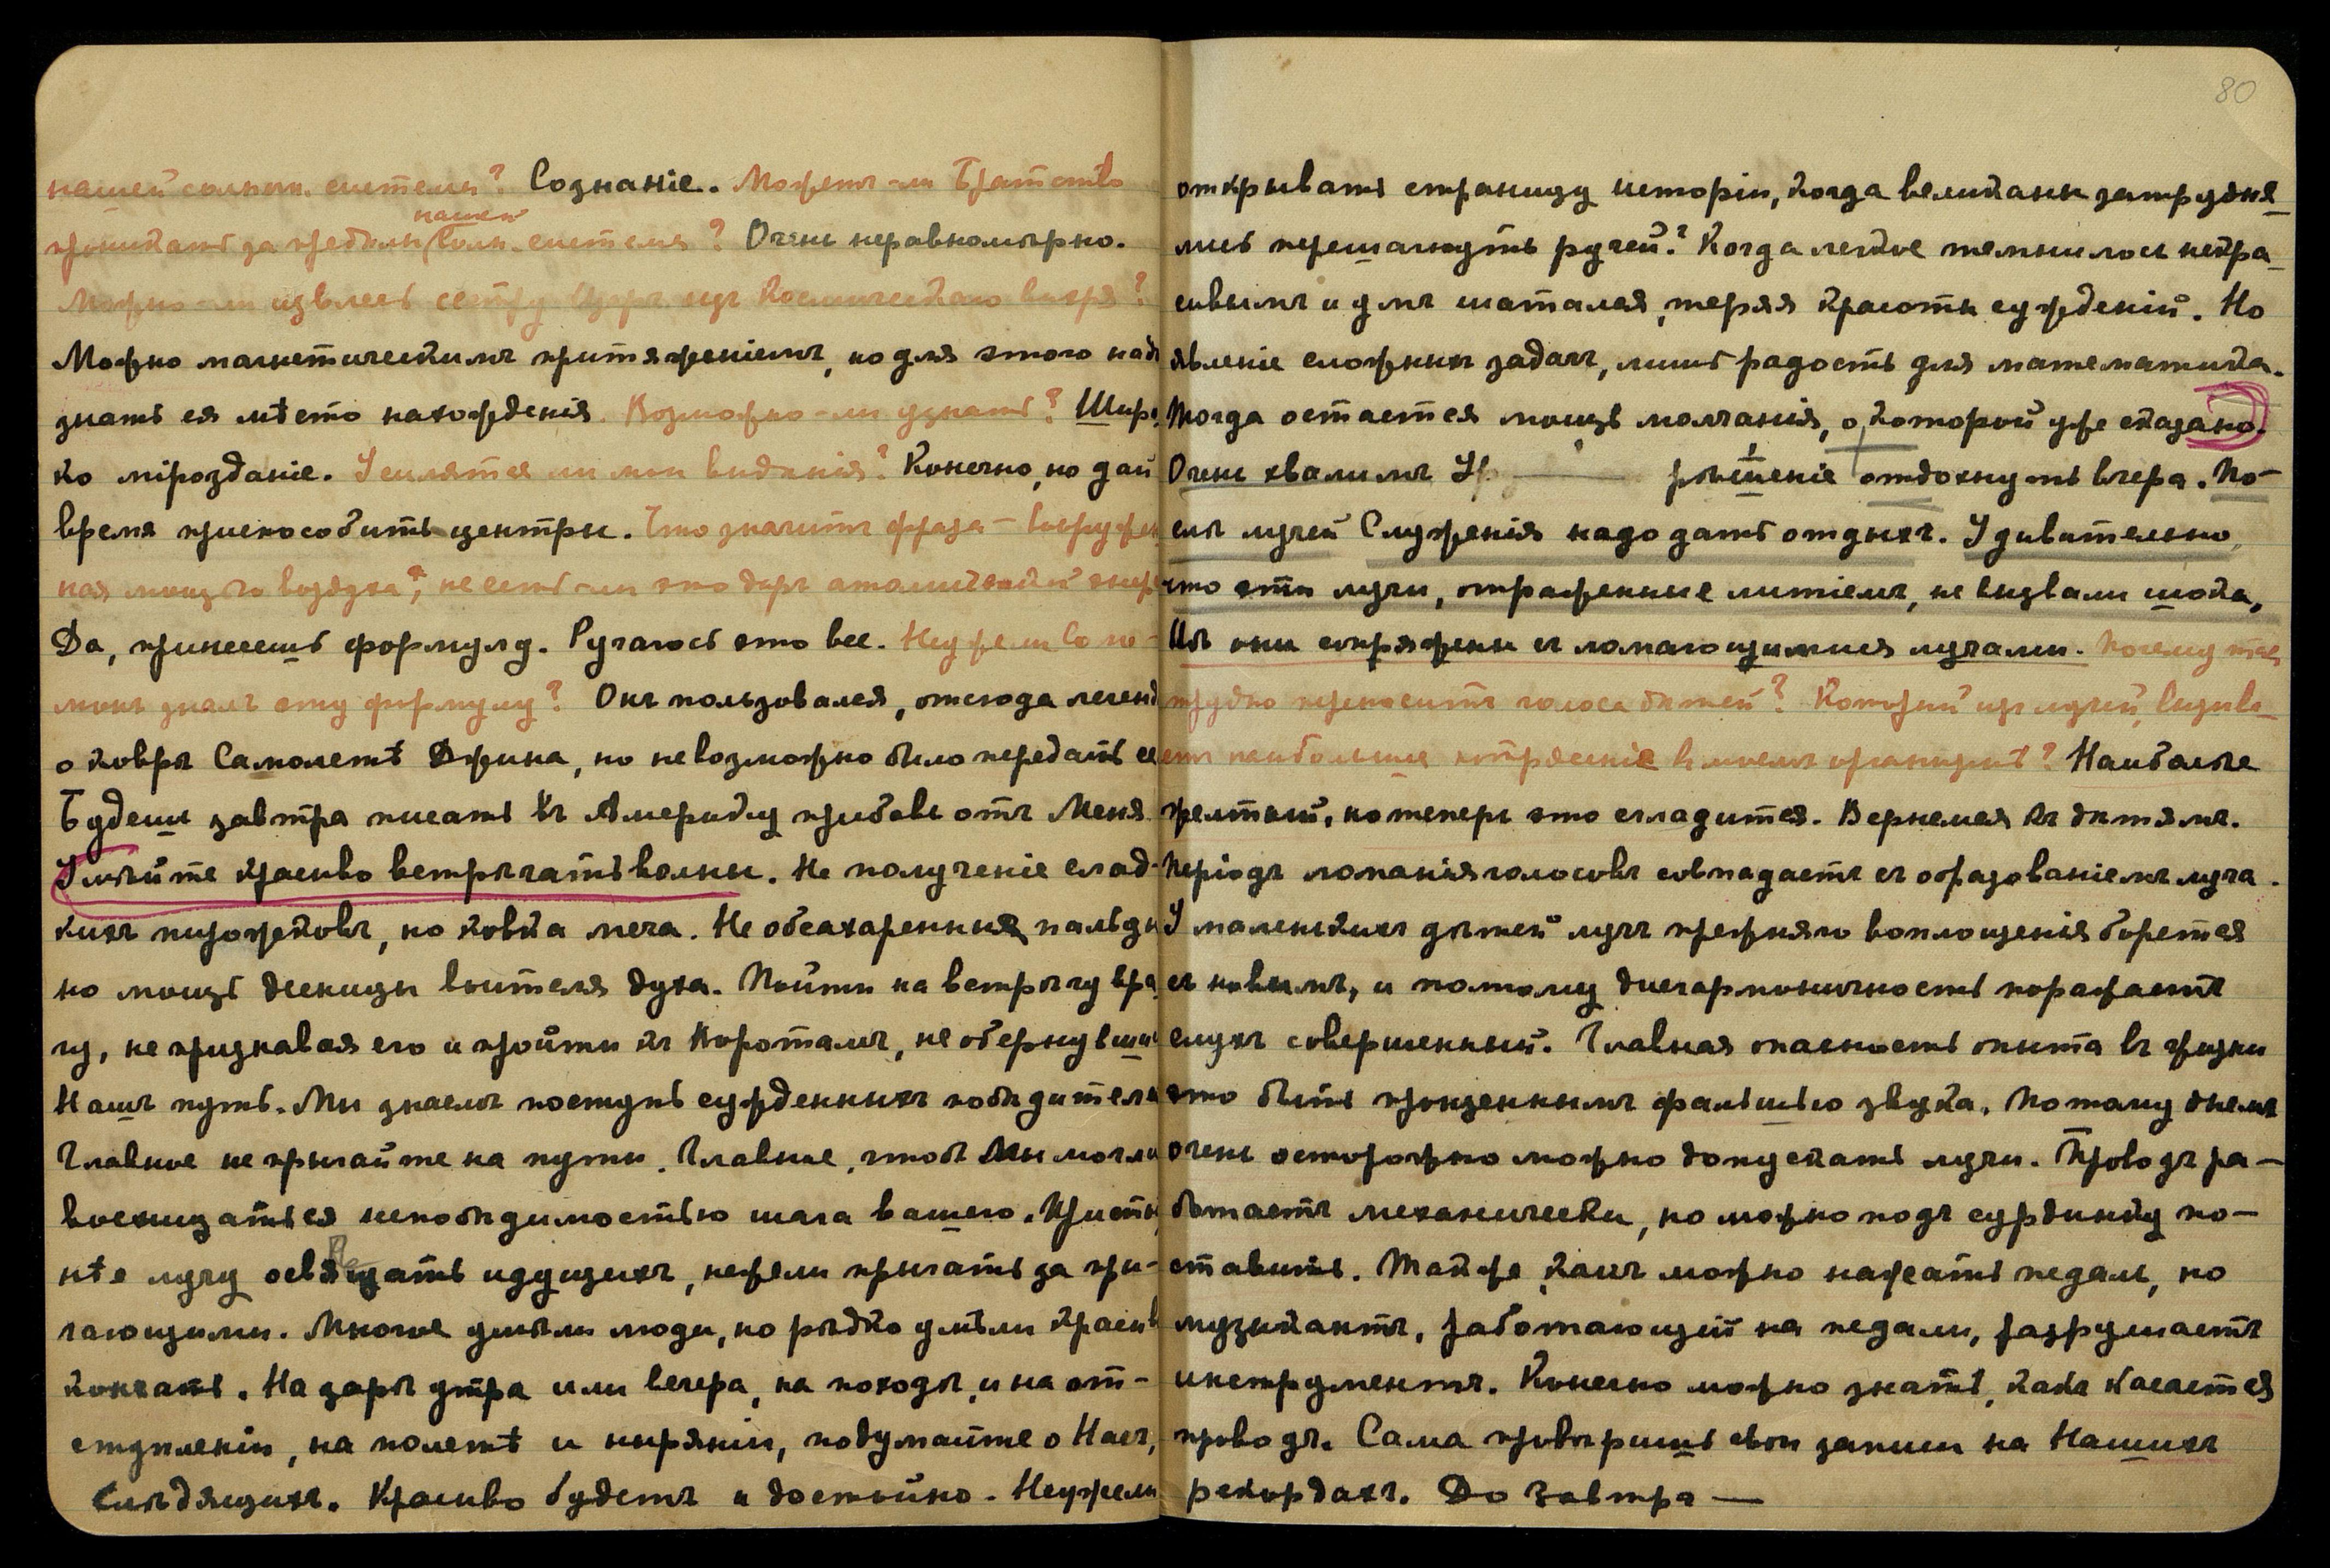 нашей солнечн. системы? Сознаніе. Можетъ-ли Братство
нашей
проникать за предѣлы солн. системы? Очень неравномѣрно.
Можно-ли извлечь сестру Изаръ изъ Космическаго вихря?
Можно магнетическимъ притяженіемъ, но для этого надо
знать ея мѣсто нахожденія. Возможно-ли узнать? Широ
ко мірозданіе. Усилятся ли мои видѣнія? Конечно, но дай
время приспособить центры. Что значитъ фраза – вооружен
ная мощью воздуха?, не есть-ли это даръ атомической энер
Да, принесешь формулу. Ручаюсь это все. Неужели Соло-
монъ зналъ эту формулу? Онъ пользовался, отсюда легенд
о коврѣ Самолетѣ Джина, но невозможно было передать ее
Будешь завтра писать въ Америку прибавь отъ Меня
Умѣйте красиво встрѣчать волны. Не полученіе слад-
кихъ пирожковъ, но ковка меча. Не обсахаренныя пальцы
но мощь десницы воителя духа. Пойти на встрѣчу вра
гу, не признавая его и пройти къ Воротамъ, не обернувшись
Нашъ путь. Мы знаемъ поступь сужденныхъ побѣдителей
Главное не прыгайте на пути. Главное, чтобъ Мы могли
восхищаться непобѣдимостью шага вашего. Присти
нѣе лучу освящать идущихъ, нежели прыгать за пры-
гающими. Многое умѣли люди, но рѣдко умѣли красиво
кончать. На зарѣ утра или вечера, на походѣ, и на от-
ступленіи, на полетѣ и ныряніи, подумайте о Насъ,
Слѣдящихъ. Красиво будетъ и достойно. Неужели
80
открывать страницу исторіи, когда великаны затрудня-
лись перешагнуть ручей? Когда легкое темнилось некра-
сивымъ и умъ шатался, теряя красоты сужденій. Но
явленіе сложныхъ задачъ, лишь радость для математика.
Тогда остается мощь молчанія, о которой уже сказано.
Очень хвалимъ Ур — рѣшеніе отдохнуть вчера. По-
слѣ лучей Служенія надо дать отдыхъ. Удивительно,
что эти лучи, отраженные литіемъ, не вызвали шока,
Ибѣ они сопряжены съ ломающимися лучами. Почему такъ
трудно переносить голоса дѣтей? Который изъ лучей, вызыва-
етъ наибольшие потрясеніе въ моемъ организмѣ? Наиболѣе
желтый, но теперь это сгладится. Вернемся къ дѣтямъ.
Періодъ ломанія голосовъ совпадаетъ съ образованіемъ луча.
У маленькихъ дѣтей лучъ прежняго воплощенія борется
съ новымъ, и потому дисгармоничность поражаетъ
слухъ совершенный. Главная опасность опыта въ жизни
это быть пронзеннымъ фальшью звука. Потому днемъ
очень осторожно можно допускать лучи. Проводъ ра-
ботаетъ механически, но можно подъ сурдинку по-
ставить. Также какъ можно нажать педаль, но
музыкантъ, работающій на педали, разрушаетъ
инструментъ. Конечно можно знать, какъ касается
проводъ. Сама провѣришь свои записи на Нашихъ
рекордахъ. До Завтра —